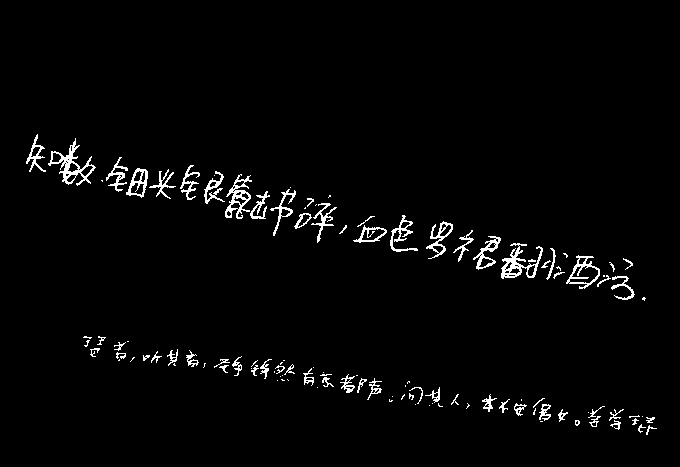 知数.钿头银篦击节碎,血色罗裙翻酒污.
琶者,听其音,铮铮然有京都声。问其人,本长安倡女。尝学琵